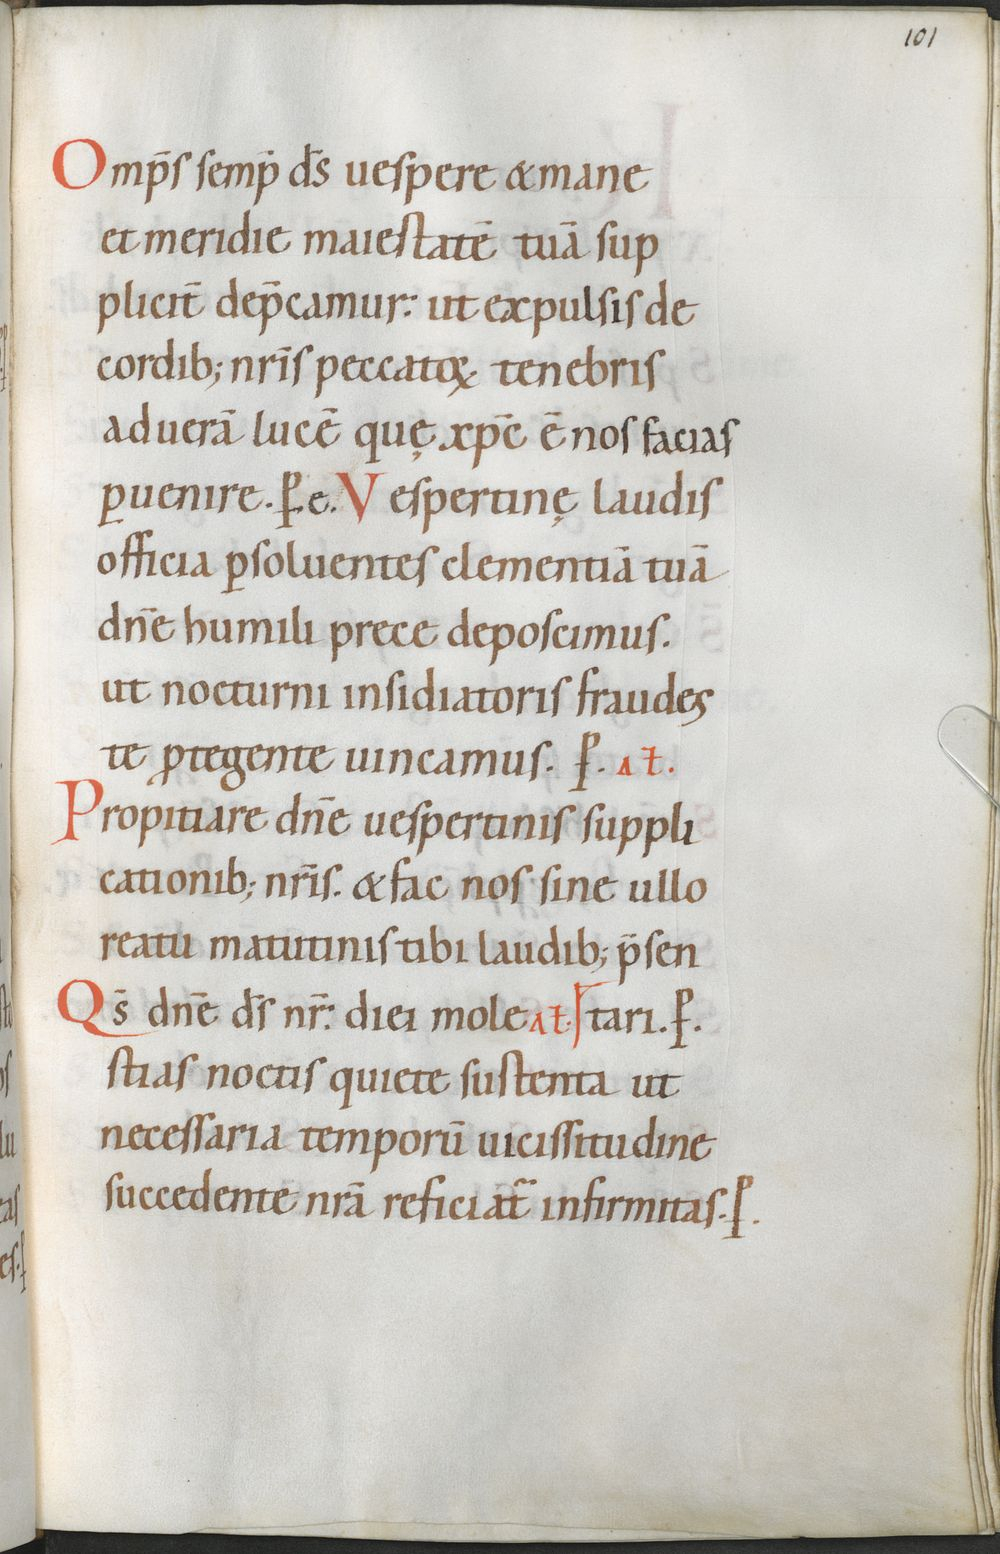 101
Omp̄s semp̄ d̄s uespere & mane
et meridie maiestatē tuā sup
plicit̄ dep̄camur: ut expulsis de
cordib; nr̄is peccatoꝝ tenebris
ad uerā lucē quę xp̄c ē nos facias
ꝑuenire. P̵ e. Vespertinę laudis
officia ꝑsoluentes clementiā tuā
dn̄e humili prece deposcimus.
ut nocturni insidiatoris fraudes
te ꝓtegente uincamus. P̵. At̄.
Propitiare dn̄e uespertinis suppli
cationib; nr̄is. & fac nos sine ullo
reatu matutinis tibi laudib; p̄sen
Qs̄ dn̄e d̄s nr̄: diei mole At̄. tari. P̵.
stias noctis quiete sustenta ut
necessaria temporū uicissitudine
succedente nr̄a reficiat᷑ infirmitas. P̵.